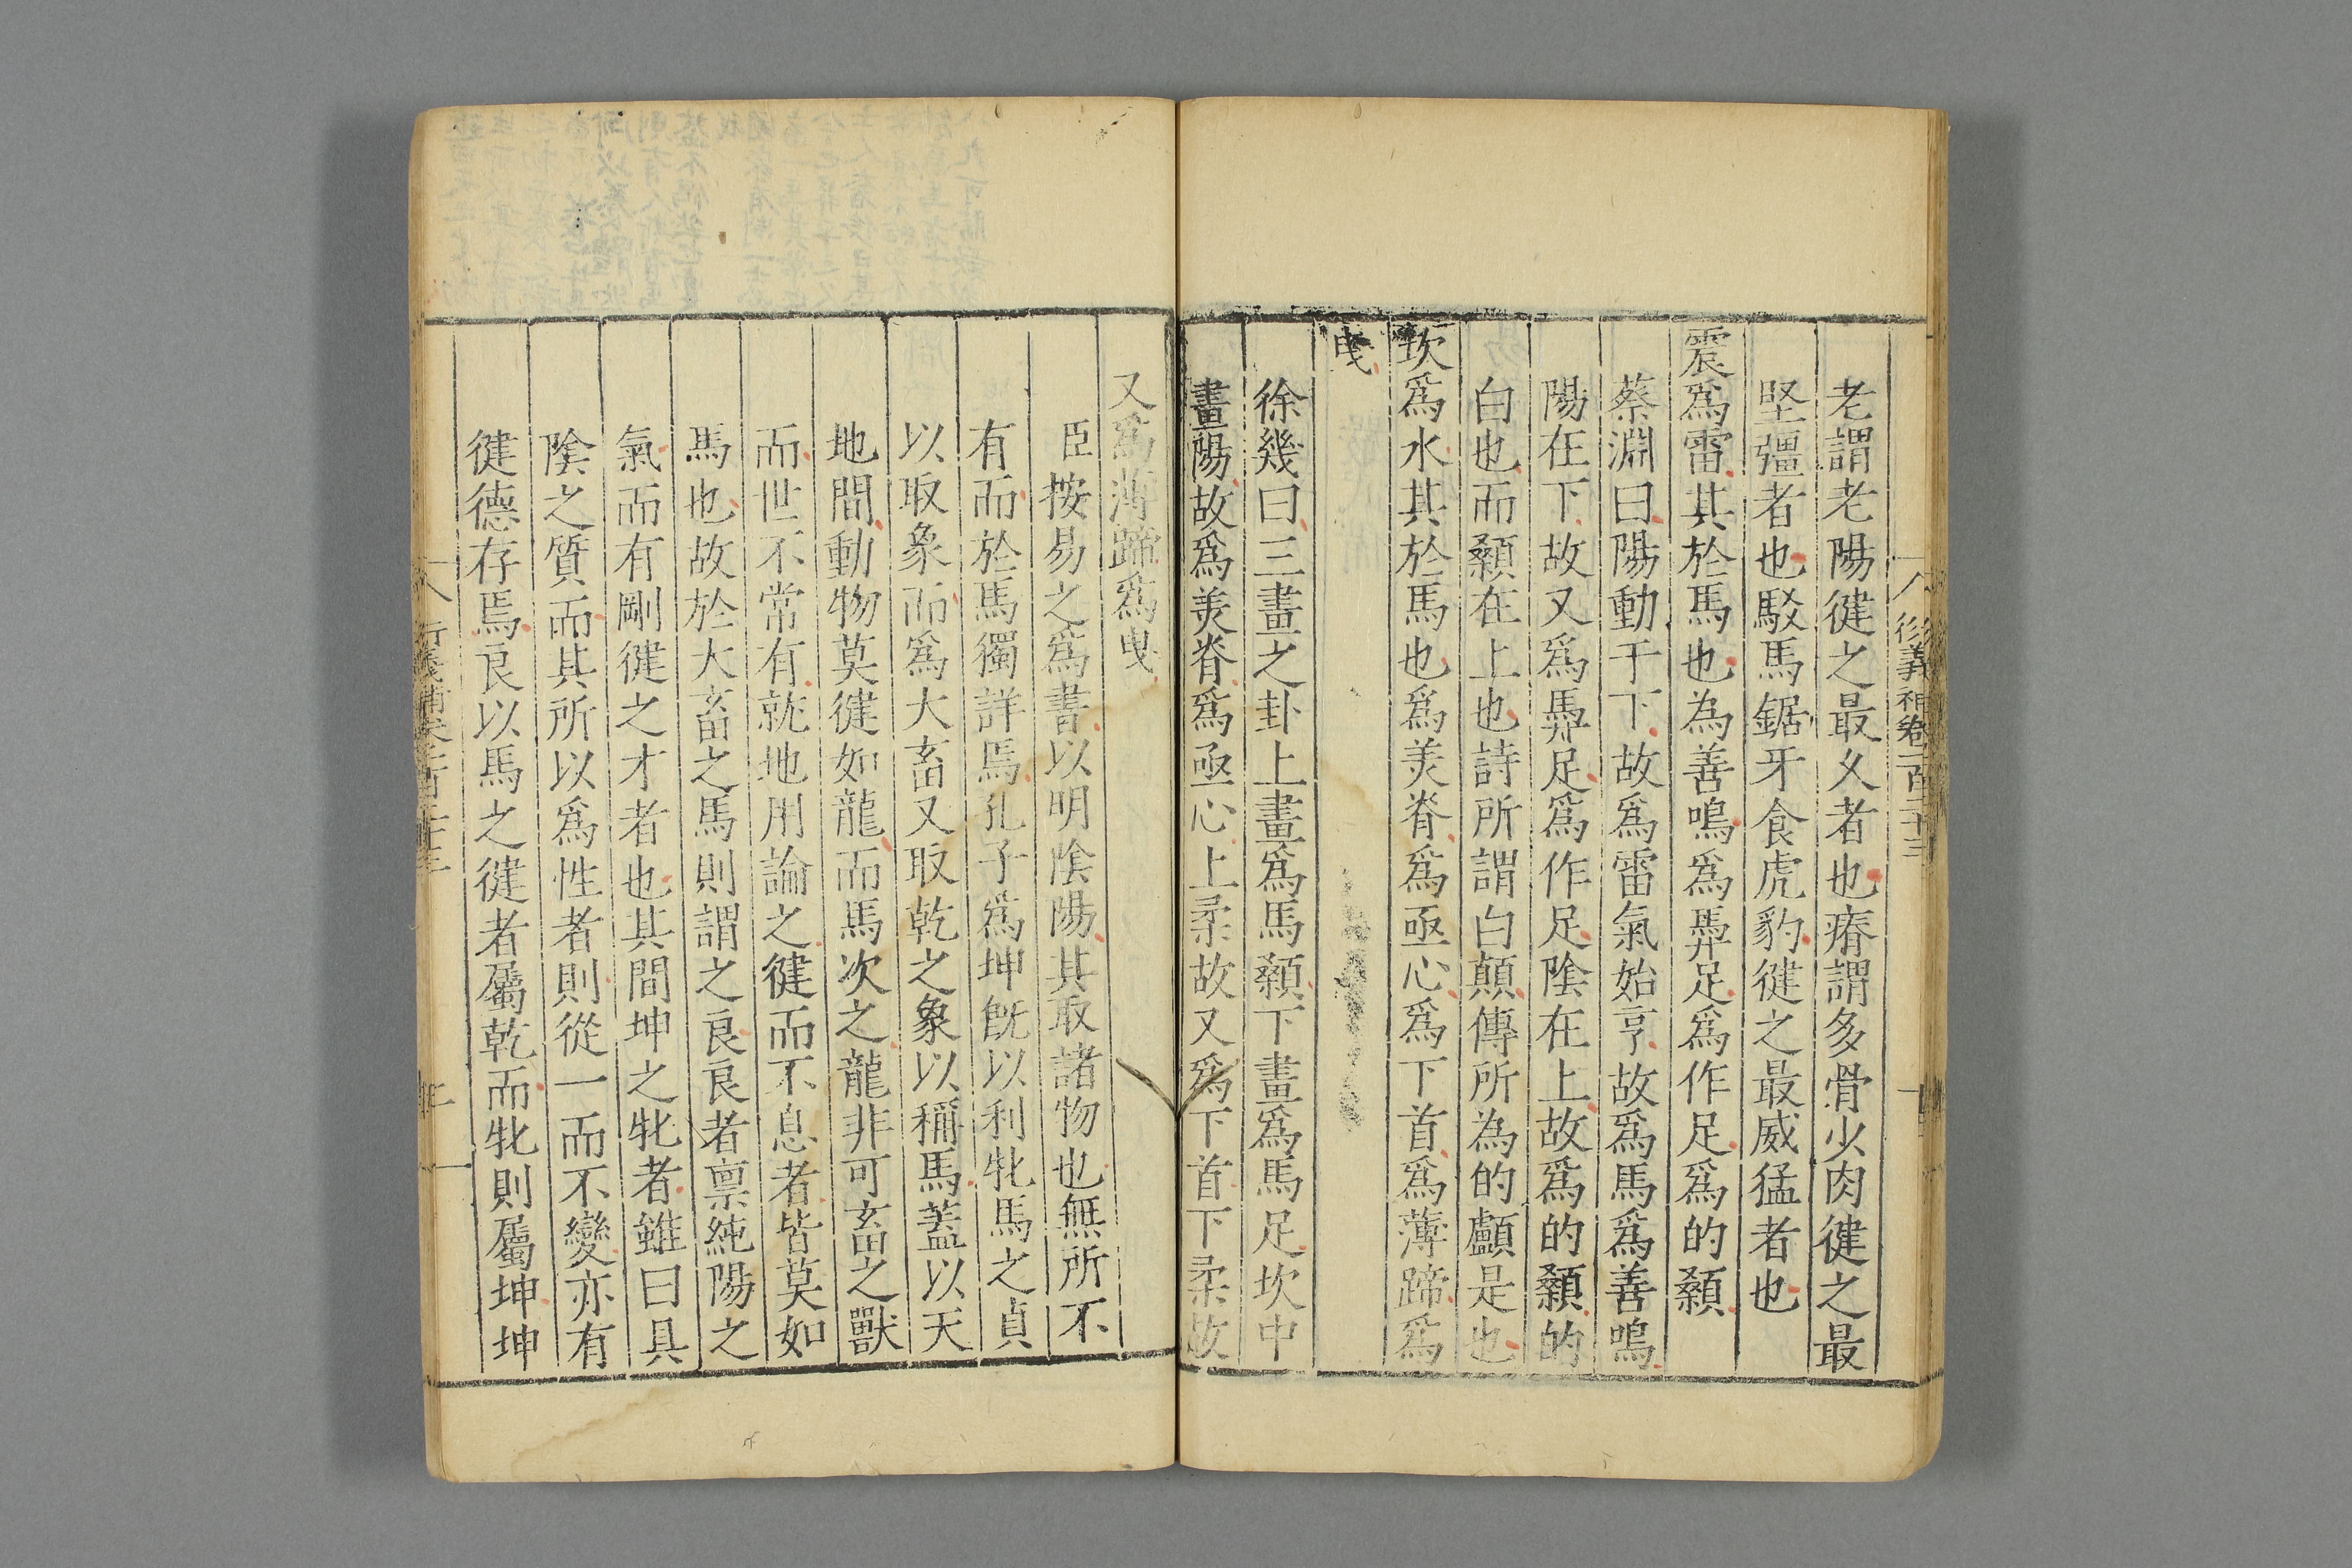 老謂老陽徤之最久者也瘠謂多骨少肉徤之最
堅彊者也駁馬鋸牙食虎豹徤之最威猛者也
震爲雷其於馬也為善鳴爲馵足爲作足爲的顙
蔡淵曰陽動于下故爲雷氣始亨故爲馬爲善鳴
陽在下故又爲馵足爲作足陰在上故爲的顙的
白也而顙在上也詩所謂白顛傳所為的顱是也
坎爲水其於馬也爲美脊爲亟心爲下首爲薄蹄爲
曳
徐幾曰三畫之卦上畫爲馬顙下畫爲馬足坎中
畫陽故爲美脊爲亟心上柔故又爲下首下柔故
又爲薄蹄爲曳
臣按易之爲書以明陰陽其取諸物也無所不
有而於馬獨詳焉孔子爲坤旣以利牝馬之貞
以取象而爲大畜又取乾之象以稱馬蓋以天
地間動物莫徤如龍而馬次之龍非可畜之獸
而世不常有就地用論之徤而不息者皆莫如
馬也故於大畜之馬則謂之良良者禀純陽之
氣而有剛徤之才者也其間坤之牝者雖曰具
陰之質而其所以爲性者則從一而不變亦有
徤德存焉良以馬之徤者屬乾而牝則屬坤坤
衍義補卷一百二十三